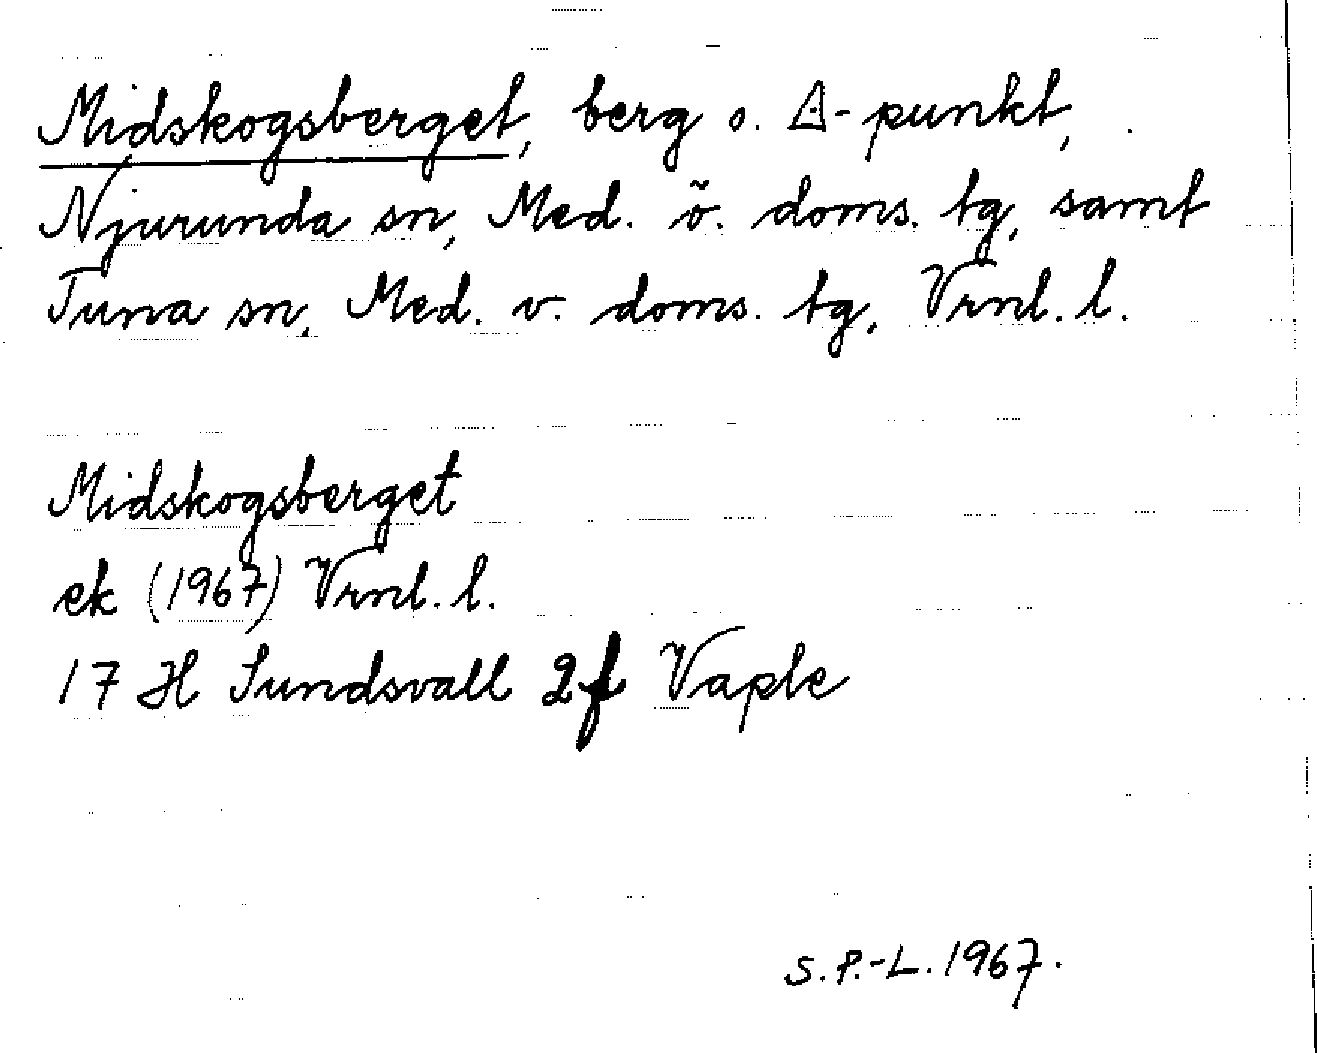 Midskogsberget, berg o. △-punkt,
Njurunda sn, Med. ö. doms. tg, samt
Tuna sn, Med. v. doms. tg, Vrnl. l.
Midskogsberget
ek (1967) Vrnl. l.
17 H Sundsvall 2f Vaple
S.P.-L. 1967.